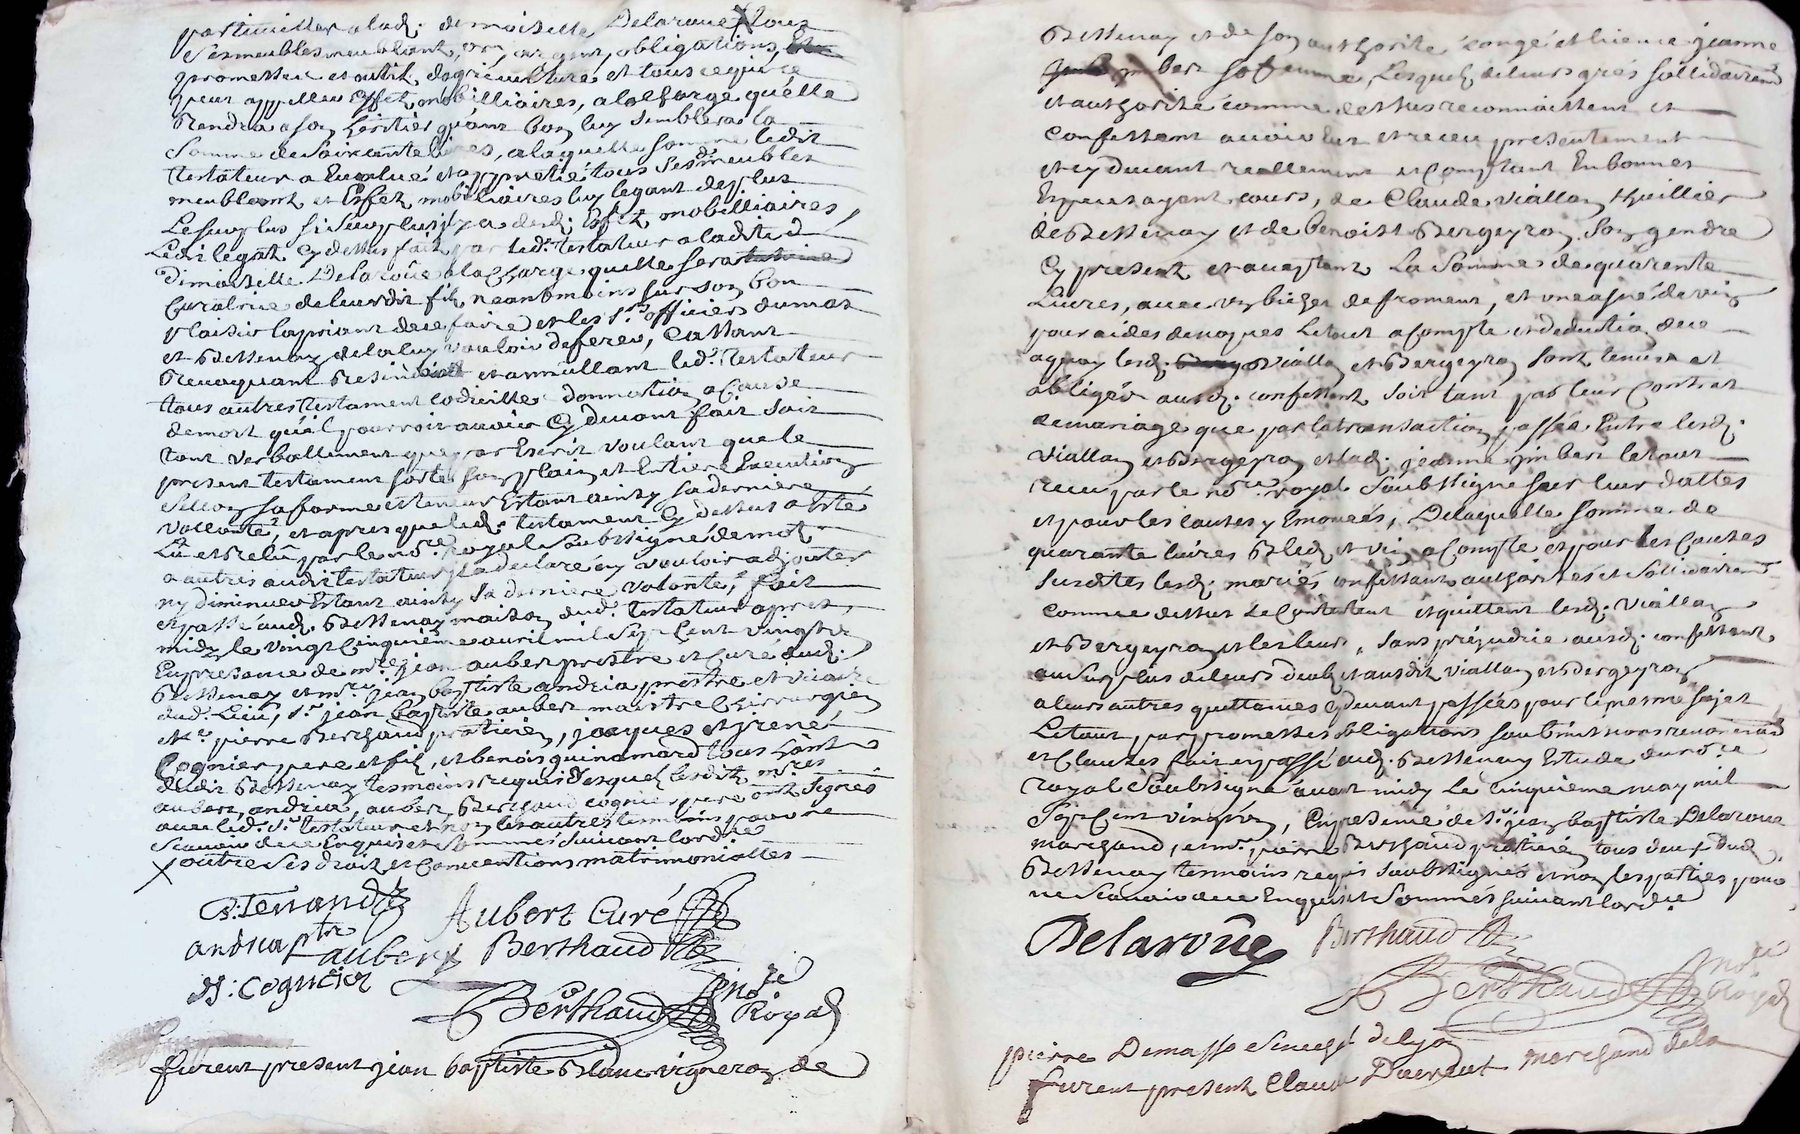 particullier a lad. demoiselle Delaroue X tous
ses meubles meublant, or, argent, obligations,
promesses et outils dagriculture et tous ce qui ce
peut appeller effets mobilliaires, a la charge quelle
rendra a son héritier quant bon luy semblera la
somme de soixante livres, a laquelle somme ledit
testateur a Evalué et appretié tous sesds meubles
meublant et Effets mobiliaires luy legant de plus
le surplus si surplus il y a desd. Effets mobilliaires
Ledit legat cy dessus fait par led. testateur a ladite
Dimoiselle Delaroüe a la charge quelle sera
Curatrice de leurdit fils neantmoins sur son bon
plaisir la priant de ce faire et les srs officiers dumas
et Bessenay de la luy vouloir deferer, Cassant
revoquant et annullant led. testateur
tous autres testament codicille donnation a cause
de mort qu'il pourroit avoir cy devant fait soit
tant verballement que par Escrit voulant que le
present testament sorte son plain et Entiere Execution
sellon sa forme et teneur Estant ainsy sa derniere
vollonté, et apres que led. testament cy dessus a esté
Lû et relû par le nore royal soubsigné de mot
a autres audit testateur il a declaré n'y vouloir adjouter
ny diminuer Estant ainsy sa derniere volonté, fait
et passé aud. Bessenay maison dud. testateur apres
midy le vingt cinquième avril mil sept cent vingt
En presence de mre jean aubert prestre et Curé dud.
Bessenay et mre jean baptiste andria prestre et vicaire
dud. Lieu, sr jean baptiste aubert maistre chirurgien
et Me pierre Berthaud praticien, jacques et
Cognier pere et fils, et benoist guinamard tous
dudit Bessenay tesmoins requis Desquels lesdits mres
aubert, andria, aubert, Berthaud cognier pere ont signés
avec led. sr testateur et non les autres tesmoins pour ne
scavoir de ce Enquis et sommés suivant lordre
X outre ses droits et Conventions matrimonialles
Aubert Curé
andria ptre
aubert Berthaud
J: Cognier
Berthaud nore Royal
furent present jean baptiste Blanc vigneron de
Bessenay et de son authorité congé et licence jeanne
imbert sa femme, lesquels de leurs grés sollidairemt
et authorité comme dessus reconnoissent et
confessent avoir Eus et receu presentement
et cy devant reallement et Comptant En bonnes
Especes ayant cours, de Claude viallon thuillier
de Bessenay et de benoist Bergeyron son gendre
cy present et acceptant la somme de quarente
Livres, avec un bichet de froment, et une asnée de vin
pour aides de nopces le tout a compte et deduction de ce
aquoy lesd. viallon et Bergeyron sont tenus et
obligés ausd. confessant soit tant par leur Contrat
de mariage que par la transaction passée Entre lesd.
viallon et Bergeyron et lad. jeanne imbert le tout
receu par le nore royal soubssigné sur leur dattes
et pour les causes y Enoncés, Delaquelle somme de
quarante livres Bled et vin a Compte et pour les Causes
susdites lesd. mariés confessant authorisés et sollidairemt
comme dessus se Contentent et quittent lesd. viallon
et Bergeyron et les leurs, sans préjudice ausd. confessant
au surplus de leurs deub et ausdit viallon et Bergeyron
a leurs autres quittances cy devant passées pour le mesme sujet
Le tout par promesses obligations soubmissions renonciaõns
et Clauses fait et passé aud. Bessenay Estude du nore
royal soubsigné avant midy le cinquieme may mil
sept cent vingt, En presence de sr jean baptiste Delaroue
marchand, et me pierre Berthaud praticien tous deux dud.
Bessenay tesmoins requis soubssignés et non les parties pour
ne scavoir de ce Enquis et sommés suivant lordre
Delaroüe Berthaud
Berthaud nore Royal
pierre Demasso
furent present Claude marchand de la